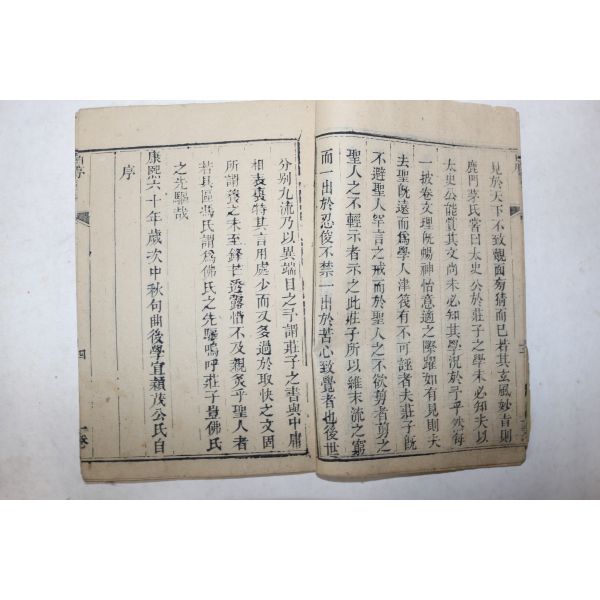 見於天下不致覿面匆猜而已若其玄風妙旨則
鹿門茅氏嘗曰太史公於莊子之學未必知夫以
太史公能質其文尚未必知其學況於予乎然每
一披卷文理旣暢神怡意適之際躍如有見則夫
去聖旣遠而爲學人津筏有不可誣者夫莊子旣
不避聖人罕言之戒而於聖人之不欲剪者剪之
聖人之不輕示者示之此莊子所以維末流之窮
而一出於忍俊不禁一出於苦心致覺者也後世
分别九流乃以異端目之予謂莊子之書與中庸
相表裏特其言用處少而又多過於取快之文固
所謂發之未至鋒芒透露惜不及親炙乎聖人者
若其區馮氏謂爲佛氏之先驅嗚呼莊子豈佛氏
之先驅哉
康熙六十年歲次中秋旬曲後學宣穎茂公氏自
序
四